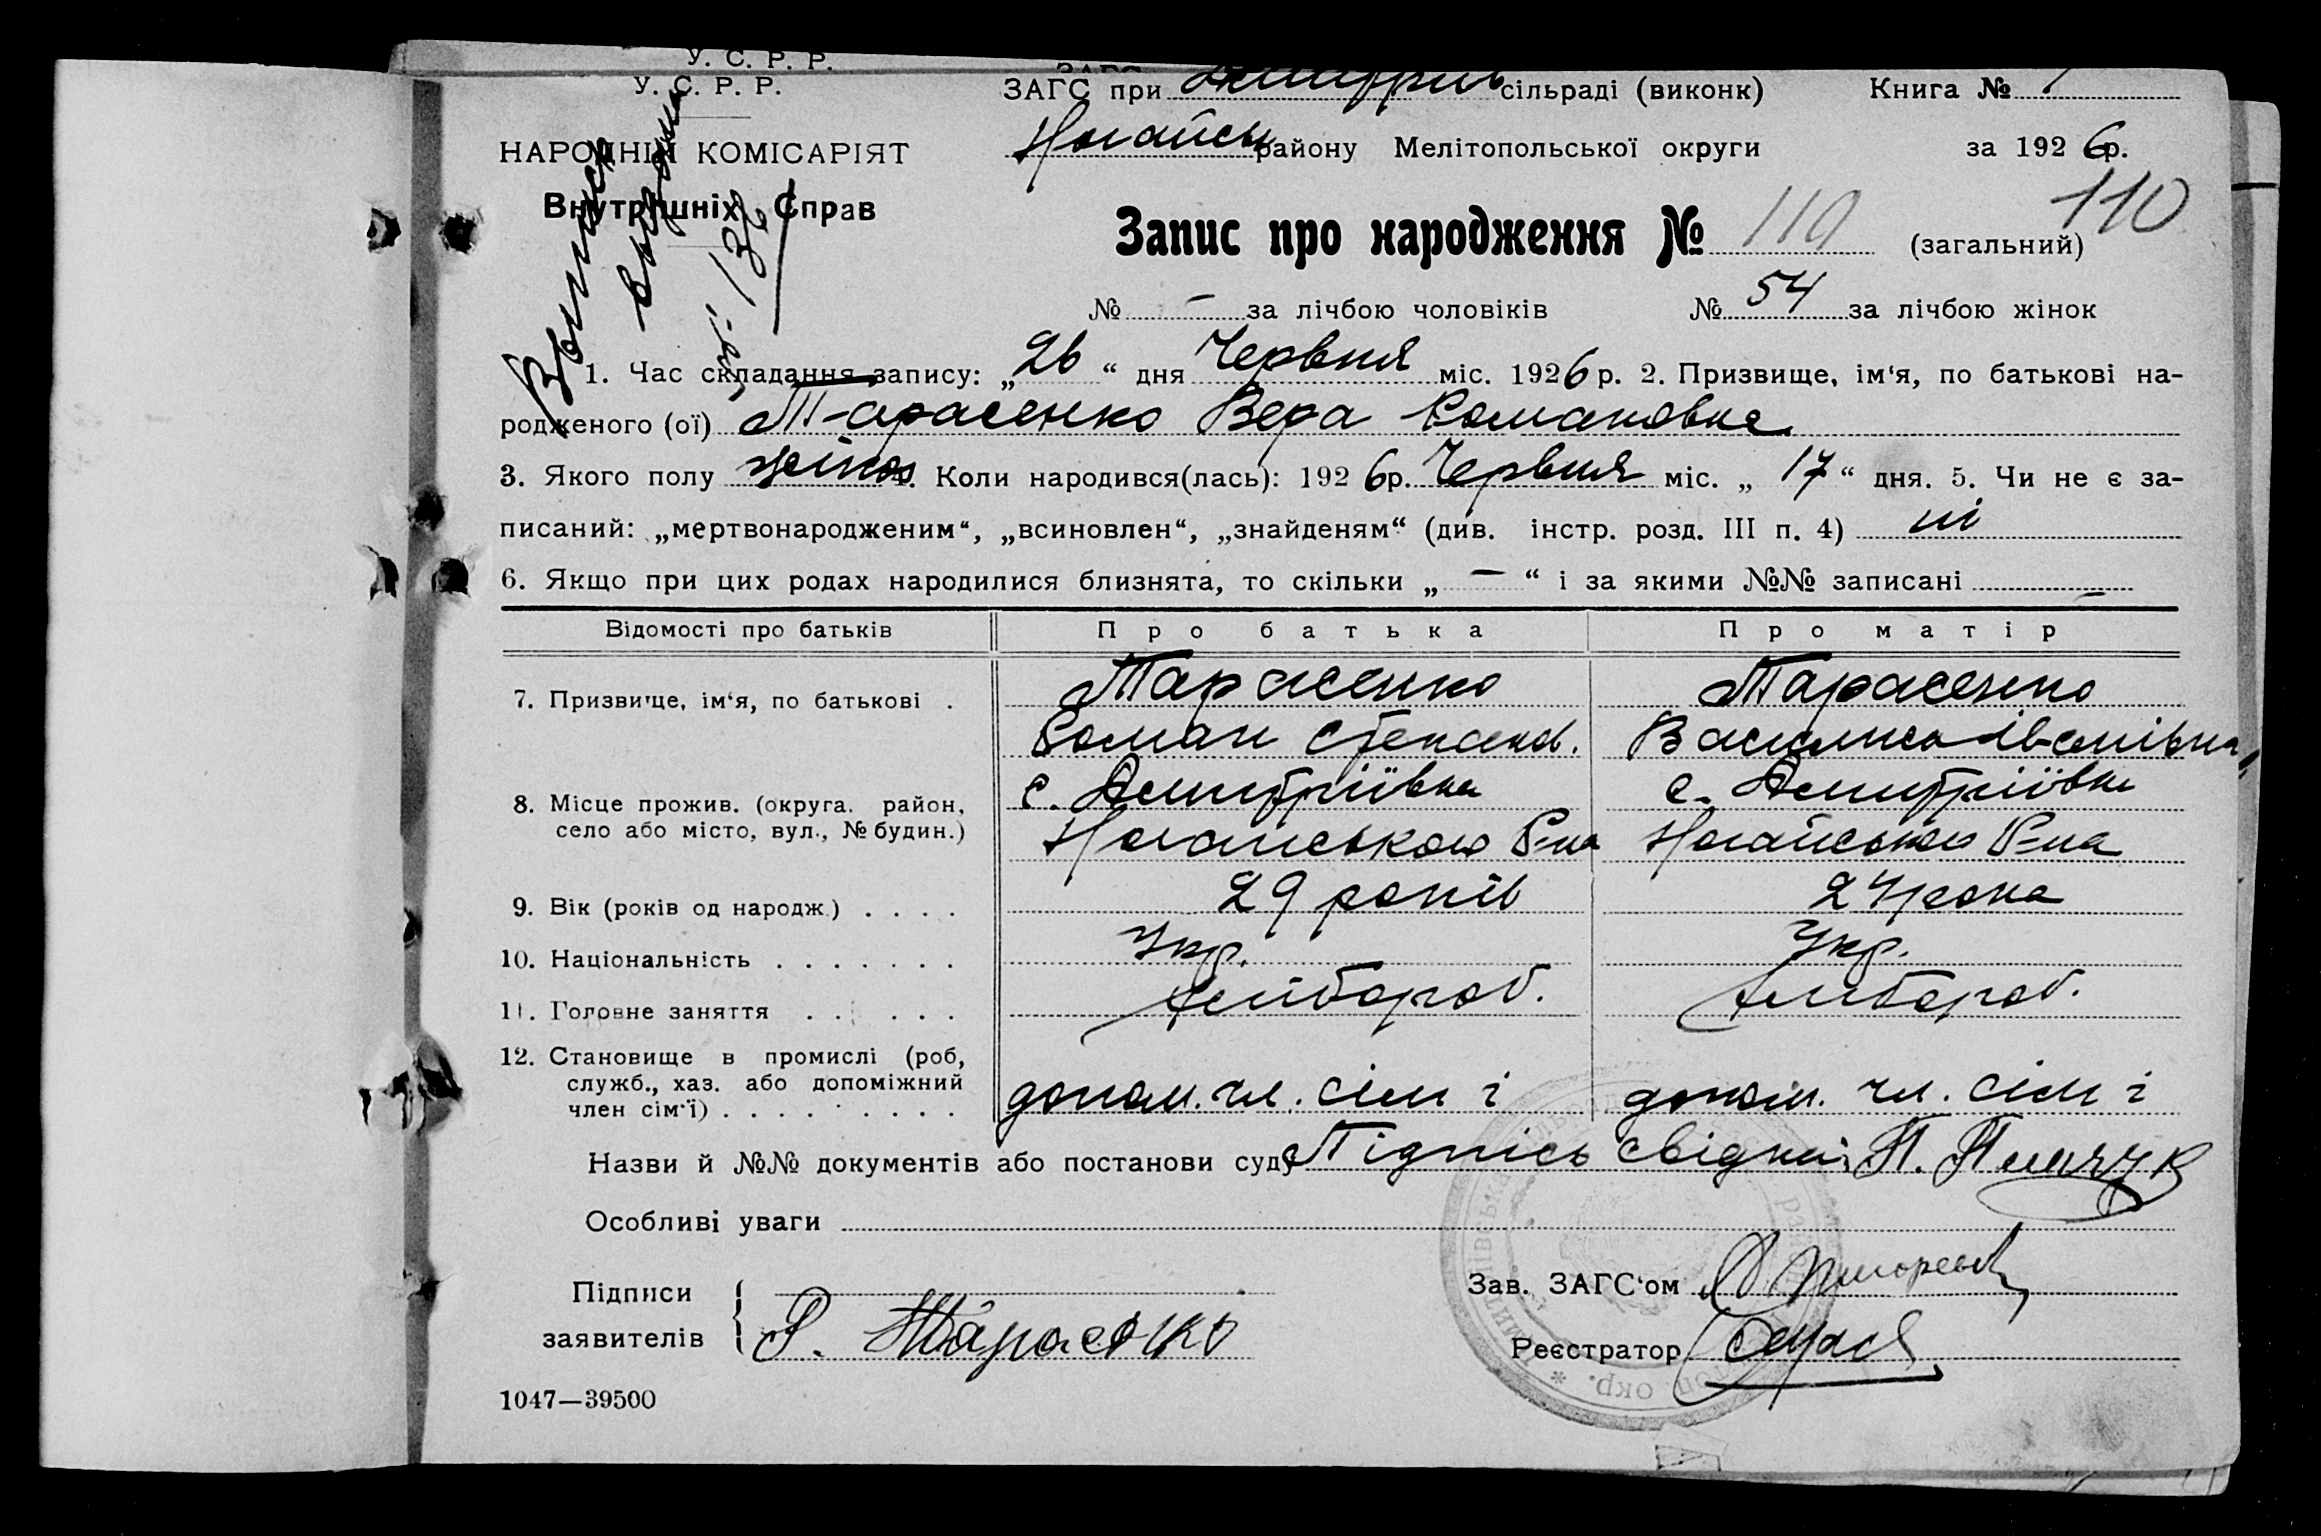 У. С. Р. Р.
У. С. Р. Р.
ЗАГС при Дмитрів сільраді (виконк) Книга №
НАРОДНІЙ КОМІСАРІЯТ
Внутрішніх Справ
Ногайськ району Мелітопольської округи за 1926 р.
Выписка
выдана
136
110
Запис про народження № 110 (загальний)
№ – за лічбою чоловіків № 54 за лічбою жінок
1. Час складання запису: „26“ дня Червня міс. 1926 р. 2. Призвище, ім‘я, по батькові на-
родженого (ої) Тарасенко Вера Романовна
3. Якого полу жіноч 4. Коли народився(лась): 1926 р. Червня міс. „17“ дня. 5. Чи не є за-
писаний: „мертвонародженим“, „всиновлен“, „знайденям“ (див. інстр. розд. III п. 4) ні
6. Якщо при цих родах народилися близнята, то скільки „–“ і за якими №№ записані –
Відомості про батьків Про батька Про матір
7. Призвище, ім‘я, по батькові . Тарасенко Тарасенко
Роман Степанов. Василиса
8. Місце прожив. (округа, район, с. Дмитріївка с. Дмитріївка
село або місто, вул., № будин.) Ногайського Р-на Ногайського Р-на
9. Вік (років од народж.) . . . . 29 років 24 рока
10. Національність . . . . . . . Укр. Укр.
11. Головне заняття . . . . . . Хлібороб. Хлібороб.
12. Становище в промислі (роб,
служб., хаз. або допоміжний
член сім‘ї) . . . . . . . . . . допом. чл. сім ї допом. чл. сім ї
Назви й №№ документів або постанови суду Підпісь свідка П.
Особливі уваги
Підписи
заявителів Р. Тарасенко
Зав. ЗАГС‘ом
Реєстратор
1047—39500